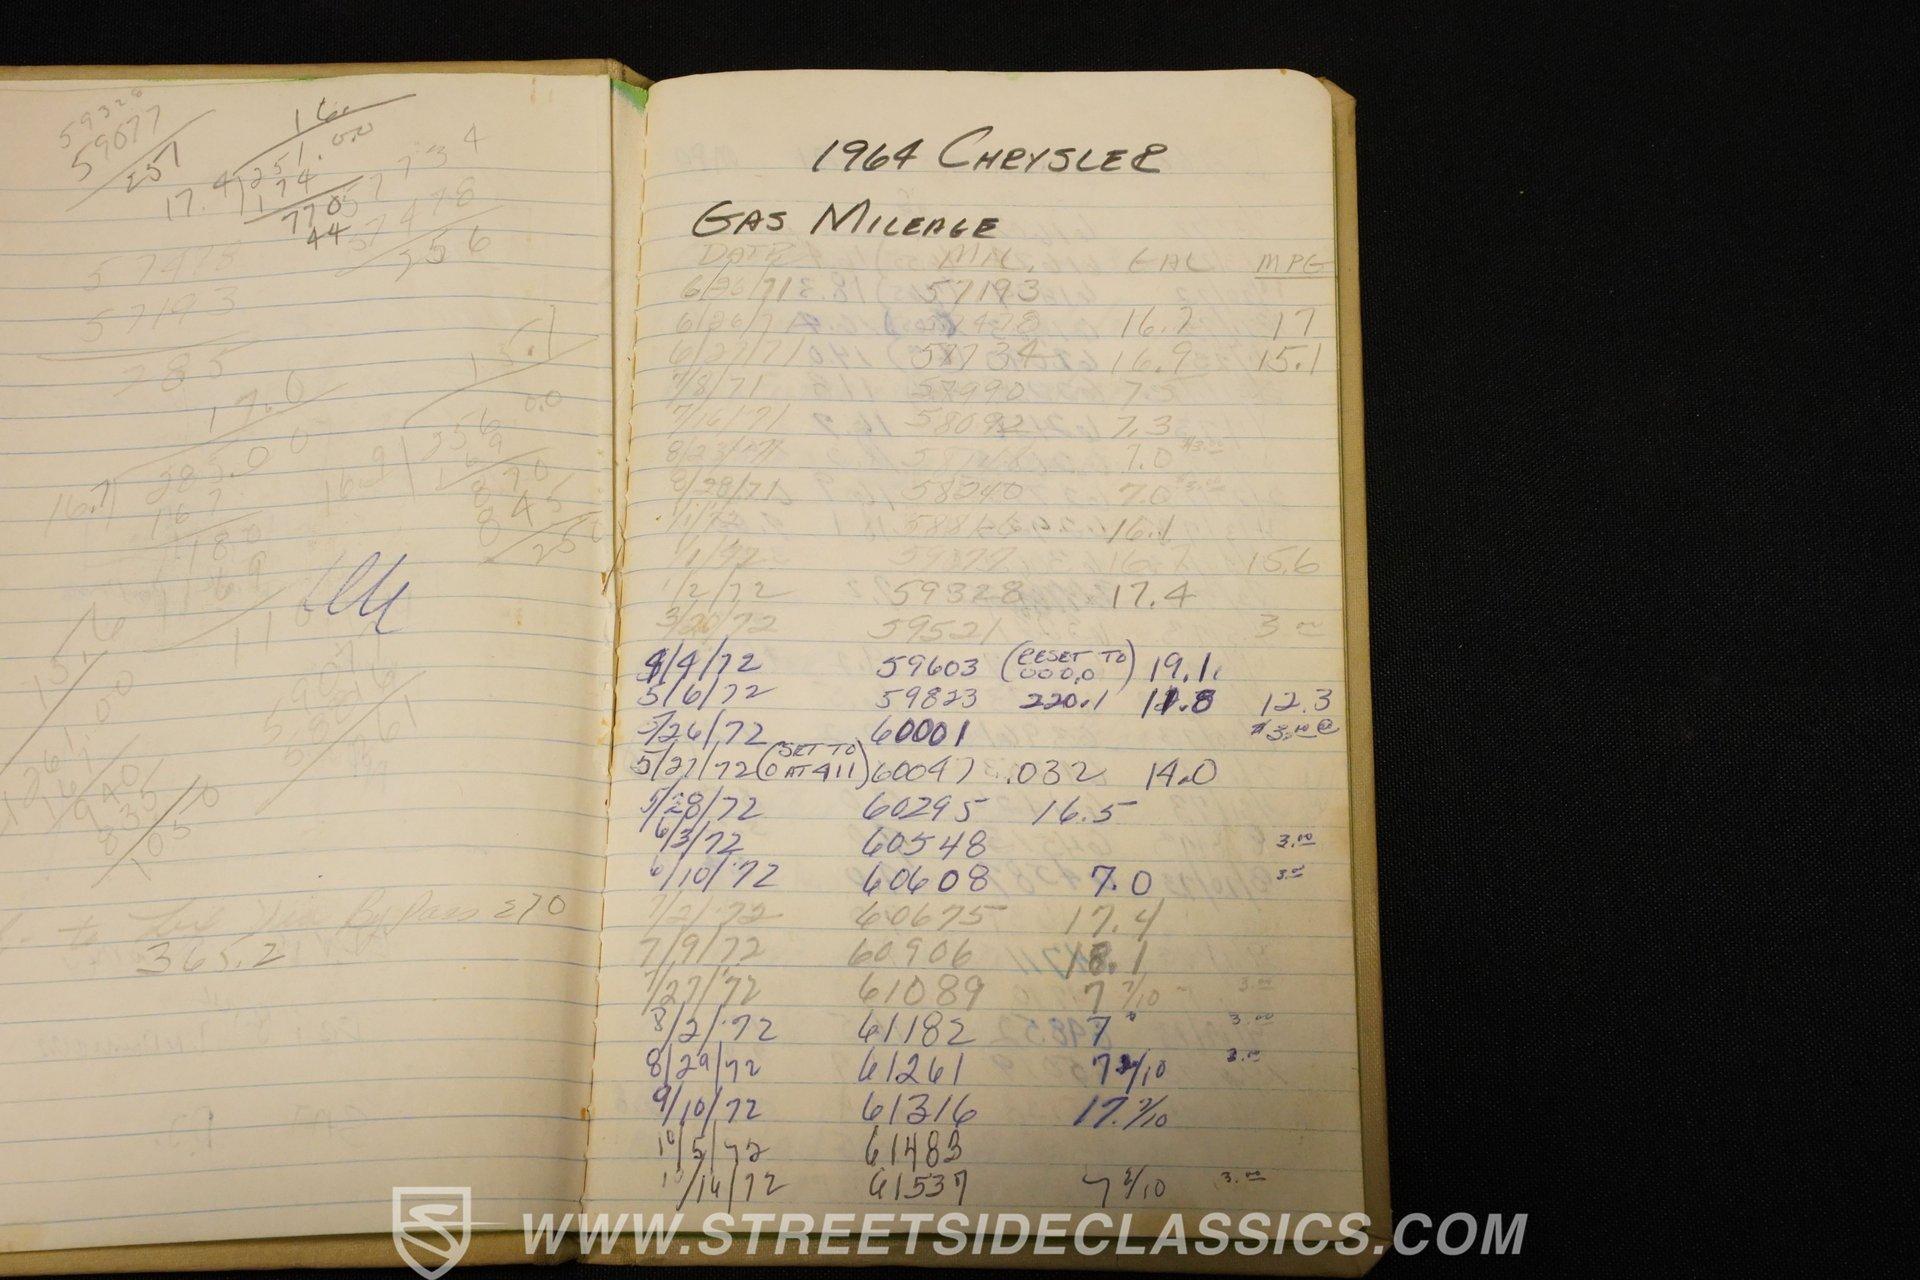 59328
59077
251
16.
0.0
17.4 251.
174
770
44
57734
57478
256
57478
57193
285
17.0
16.7 285.00
167
1180
15.1
0.0
16.9 256
169
870
845
250
15.6
.00
261.
167
940
835
1050
59077
58816
261
By Pass 270
365.2
1964 CHRYSLER
GAS MILEAGE
DATE MIL. GAL MPG
6/26/71 57193
6/26/71 57478 16.7 17
6/27/71 57734 16.9 15.1
7/8/71 57990 7.5
7/16/71 58092 7.3
8/23/71 7.0 $3.00
8/28/71 58240 7.0 $3.00
1/1/72 58816 16.1
1/1/72 59077 16.7 15.6
1/2/72 59328 17.4
3/20/72 59521 3.00
4/4/72 59603 (RESET TO 000.0) 19.1
5/6/72 59823 220.1 17.8 12.3
5/26/72 60001 $3.00@
5/27/72 (SET TO 0 AT 411) 60047 .032 14.0
5/28/72 60295 16.5
6/3/72 60548 3.00
6/10/72 60608 7.0 3.00
7/2/72 60675 17.4
7/9/72 60906 18.1
7/27/72 61089 7 7/10 3.00
8/2/72 61182 7 3.00
8/29/72 61261 7 2/10 3.00
9/10/72 61316 17.2/10
10/5/72 61483
10/14/72 61537 7 2/10 3.00
WWW.STREETSIDECLASSICS.COM